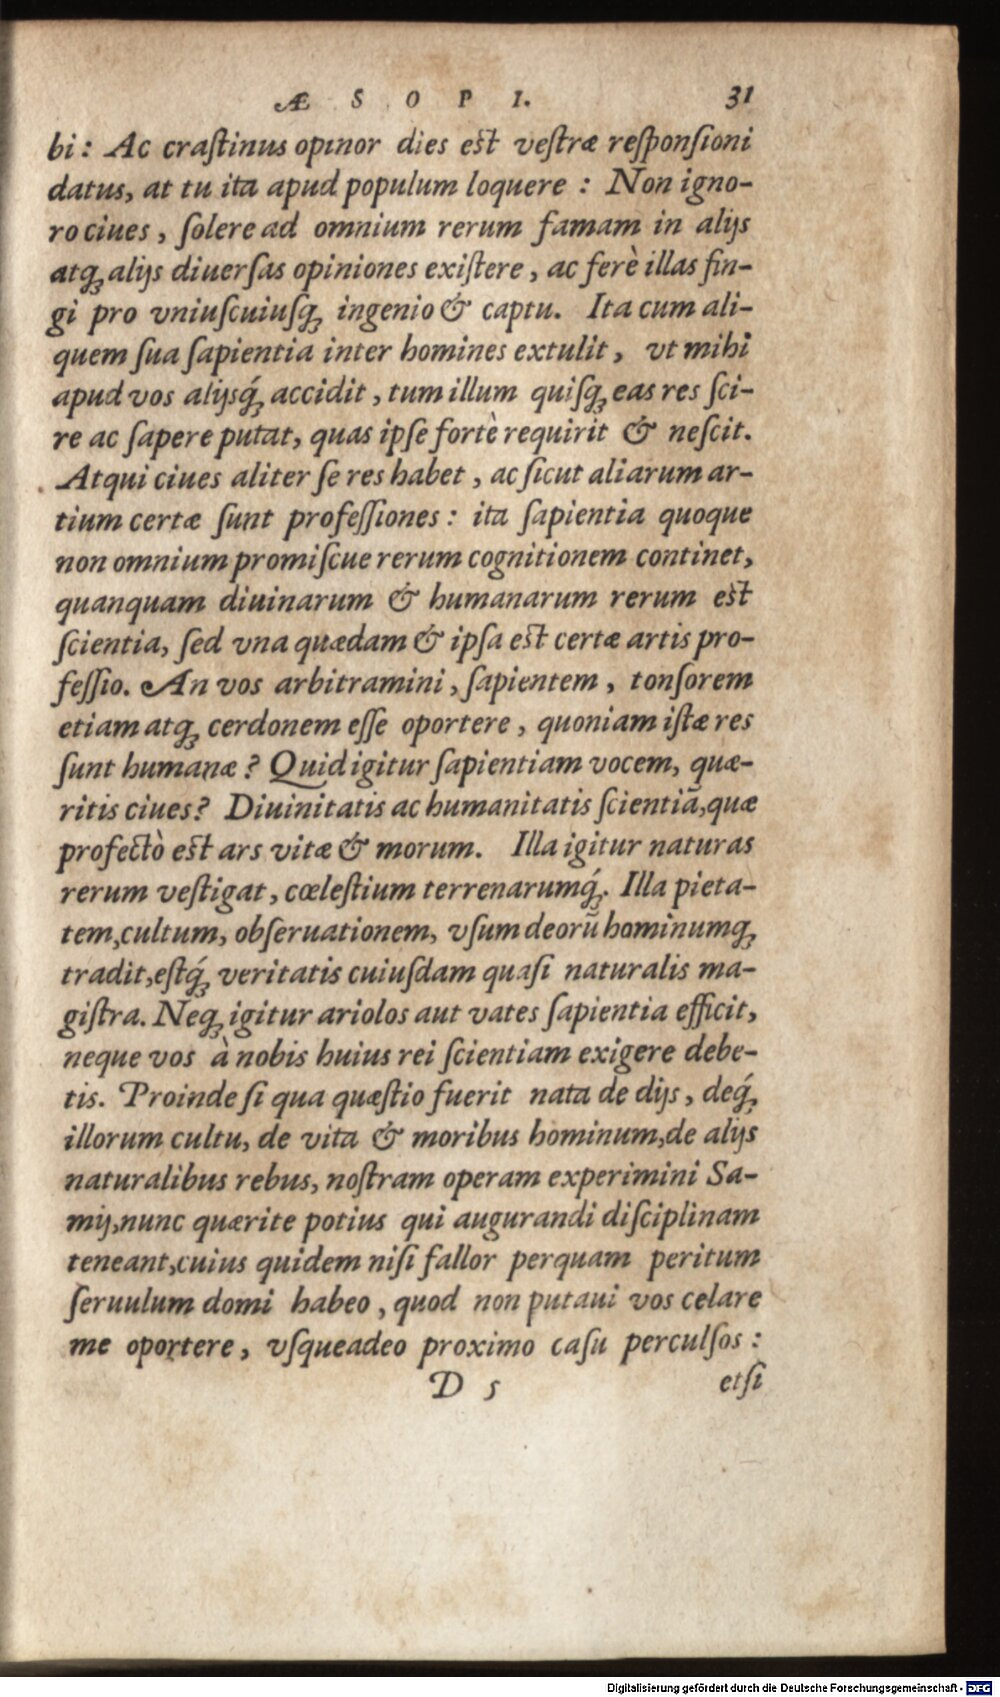 ÆSOPI. 31
bi: Ac craſtinus opinor dies est veſtræ reſponſioni
datus, at tu ita apud populum loquere : Non igno-
ro ciues, ſolere ad omnium rerum famam in alijs
atq; alijs diuerſas opiniones exiſtere, ac ferè illas fin-
gi pro vniuſcuiuſq; ingenio & captu. Ita cum ali-
quem ſua ſapientia inter homines extulit, vt mihi
apud vos alijsq́; accidit, tum illum quiſq; eas res ſci-
re ac ſapere putat, quas ipſe fortè requirit & neſcit.
Atqui ciues aliter ſe res habet, ac ſicut aliarum ar-
tium certæ ſunt profeſſiones: ita ſapientia quoque
non omnium promiſcue rerum cognitionem continet,
quanquam diuinarum & humanarum rerum est
ſcientia, ſed vna quædam & ipſa est certæ artis pro-
feſſio. An vos arbitramini, ſapientem, tonſorem
etiam atq; cerdonem eſſe oportere, quoniam iſtæ res
ſunt humanæ? Quid igitur ſapientiam vocem, quæ-
ritis ciues? Diuinitatis ac humanitatis ſcientiā, quæ
profectò est ars vitæ & morum. Illa igitur naturas
rerum veſtigat, cœleſtium terrenarumq́;. Illa pieta-
tem, cultum, obſeruationem, vſum deorū hominumq;
tradit, eſtq́; veritatis cuiuſdam quaſi naturalis ma-
giſtra. Neq; igitur ariolos aut vates ſapientia efficit,
neque vos à nobis huius rei ſcientiam exigere debe-
tis. Proinde ſi qua quæſtio fuerit nata de dijs, deq́;
illorum cultu, de vita & moribus hominum, de alijs
naturalibus rebus, noſtram operam experimini Sa-
mij, nunc quærite potius qui augurandi diſciplinam
teneant, cuius quidem niſi fallor perquam peritum
ſeruulum domi habeo, quod non putaui vos celare
me oportere, vſqueadeo proximo caſu perculſos:
D 5 etſi
Digitalisierung gefördert durch die Deutsche Forschungsgemeinschaft - DFG